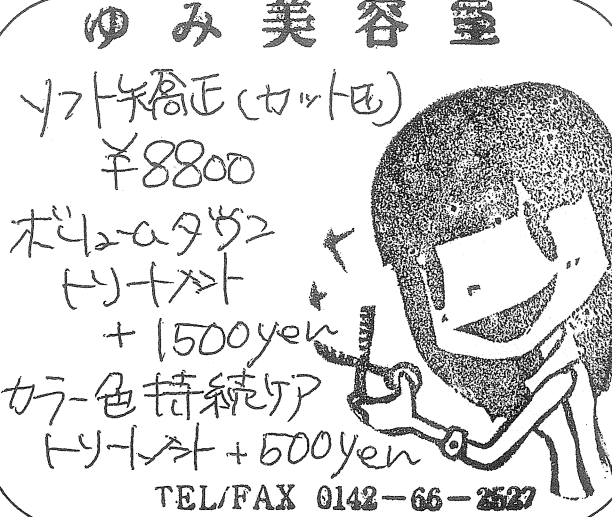 ゆみ美容室
ソフト矯正(カット込)
¥8800
ボリュームダウン
トリートメント
+1500yen
カラー色持続ケア
トリートメント+500yen
TEL/FAX 0142-66-2527